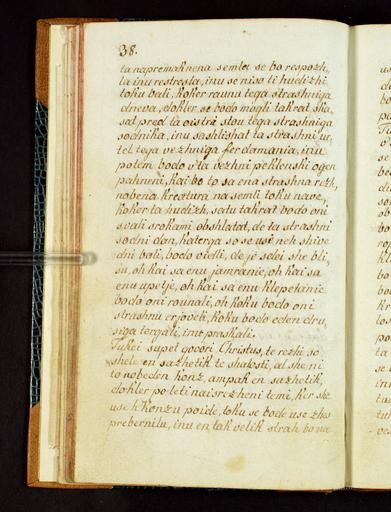 38.
ta napremaknena semla se bo respozh,
ta inu restresla, inu se niso ti hudizhi
toku bali, koker raunu tega strashniga
dneva, dokler se bodo mogli takrat ska,
sat pred ta oistrá stou tega strashniga
sodnika, inu sashlishat ta strashni ur,
tel tega vezhniga ferdamania, inu
potem bodo v'ta vezhni peklenski ogen
pahneni, kai bo to sa ena strashna rezh,
nobena kreatura na semli toku nave,
koker ta hudizh, satu takrat bodo oni
svali srokami obshlatat, de ta strashni
sodni dan, katerga so se usi neh shive
dni bali, bodo vidli, de je sdei she bli,
su, oh kai sa enu jamranie, oh kai sa
enu upitje, oh kai sa enu klepetanie
bodo oni rounali, oh koku bodo oni
strashnu erjoveli, koku bodo eden dru,
siga tergali, inu praskali.
Tukei supet govori Christus, te rezhi so
shele en sazhetik te shalosti, al she ni
to nobeden konz, ampak en sazhetik,
dokler po leti nai srezheni temi, ker she
use h'konzu poide, toku se bode use zhes
prebernilu, inu en tak velik strah bo na